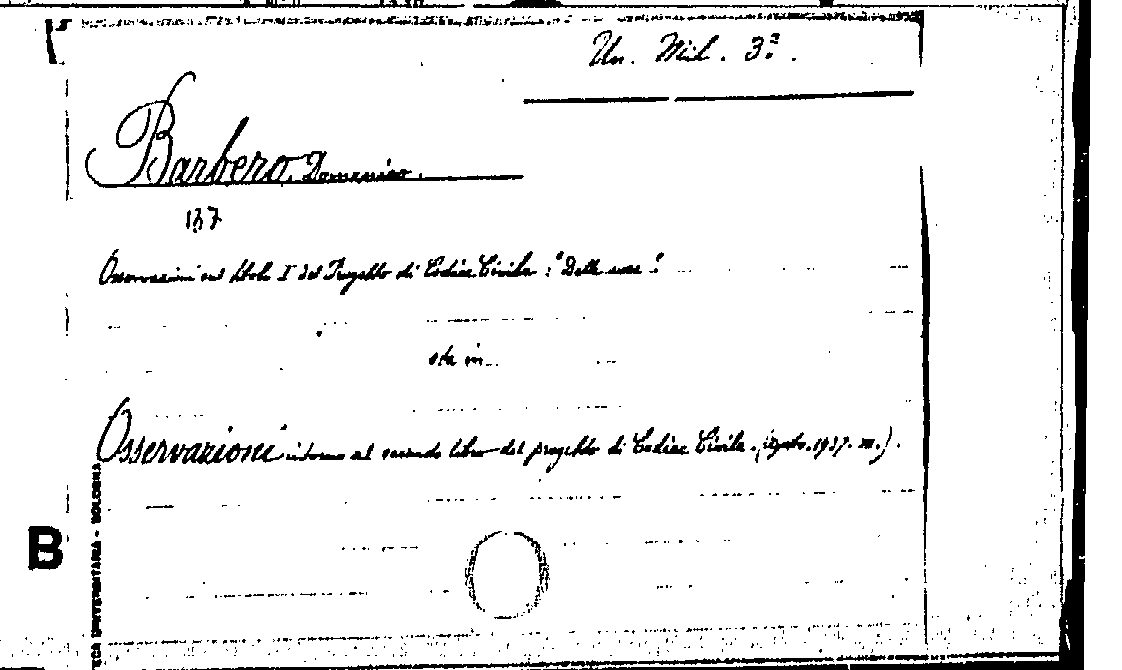 Un. Mil. 3ª.
Barbero, Domenico.
137
Osservazioni sul titolo I del Progetto di Codice Civile: "Delle cose".
sta in
Osservazioni intorno al secondo libro del progetto di Codice Civile. (1937. XV.).
B
TECA UNIVERSITARIA - BOLOGNA